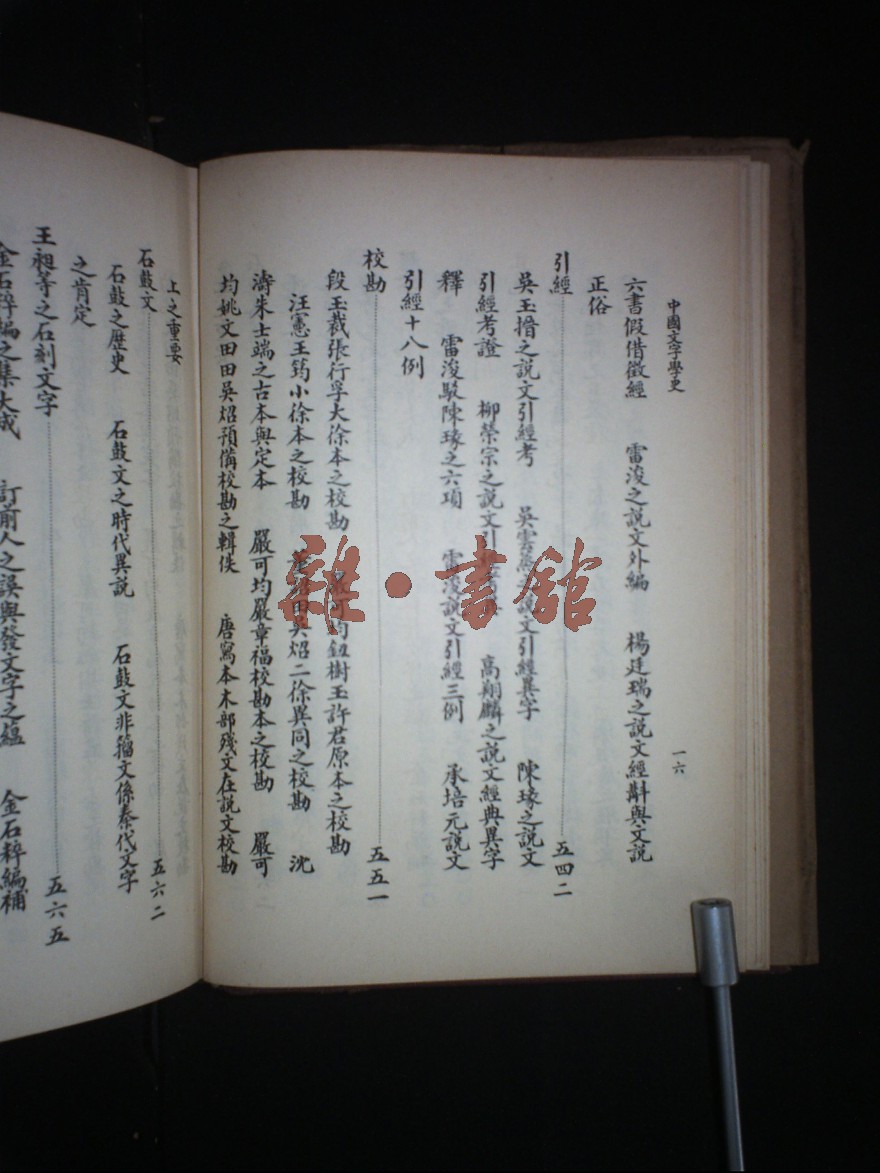 中國文字學史
一六
六書假借徵經　雷浚之說文外編　楊廷瑞之說文經斠與文說
正俗
引經……五四二
吳玉搢之說文引經考　吳雲蒸之說文引經異字　陳瑑之說文
引經考證　柳榮宗之說文引經　高翔麟之說文經典異字
釋　雷浚駁陳瑑之六項　雷浚說文引經三例　承培元說文
引經十八例
校勘……五五一
段玉裁張行孚大徐本之校勘　嚴可均鈕樹玉許君原本之校勘
汪憲王筠小徐本之校勘　董詔田吳炤二徐異同之校勘　沈
濤朱士端之古本與定本　嚴可均嚴章福校勘本之校勘　嚴可
均姚文田田吳炤預備校勘之輯佚　唐寫本木部殘文在說文校勘
上之重要
石鼓文……五六二
石鼓之歷史　石鼓文之時代異說　石鼓文非籀文係秦代文字
之肯定
王昶等之石刻文字……五六五
金石粹編之集大成　訂前人之誤與發文字之蘊　金石粹編補
雜·書館